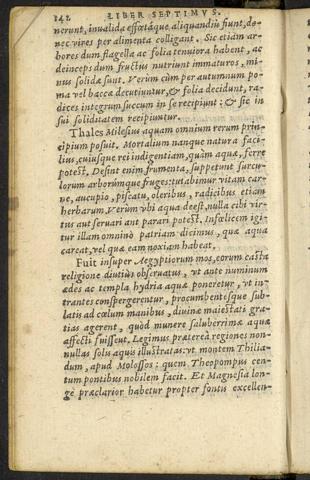 142. LIBER SEPTIMVS.
nerunt, inualida effœtáque aliquandiu fiunt, do-
nec vires per alimenta colligant. Sic etiam ar-
bores dum flagella ac folia tenuiora habent, ac
deinceps dum fructus nutriunt immaturos, mi-
nus solidæ sunt. Verùm cùm per autumnum po-
ma vel baccæ decutiuntur, & folia decidunt, ra-
dices integrum succum in se recipiunt: & sic in
sui soliditatem recipiuntur.
Thales Milesius aquam omnium rerum prin-
cipium posuit. Mortalium nanque natura faci-
lius, cuiusque rei indigentiam, quàm aquæ, ferre
potest. Desint enim frumenta, suppetunt surcu-
lorum arborúmque fruges: tutabimur vitam car-
ne, aucupio, piscatu, oleribus, radicibus etiam
herbarum. Verùm vbi aqua deest, nulla cibi vir-
tus aut seruari aut parari potest. Infœlicem igi-
tur illam omnino patriam dicimus, quæ aqua
careat, vel quæ eam noxiam habeat.
Fuit insuper Aegyptiorum mos, eorum casta
religione diutiùs obseruatus, vt ante numinum
ædes ac templa hydria aquæ poneretur, vt in-
trantes conspergerentur, procumbentésque sub-
latis ad cœlum manibus, diuinæ maiestati gra-
tias agerent, quòd munere saluberrimæ aquæ
affecti fuissent. Legimus præterea regiones non-
nullas solis aquis illustratas: vt montem Thilia-
dum, apud Molossos: quem Theopompus cen-
tum pontibus nobilem facit. Et Magnesia lon-
gè præclarior habetur propter fontis excellen-